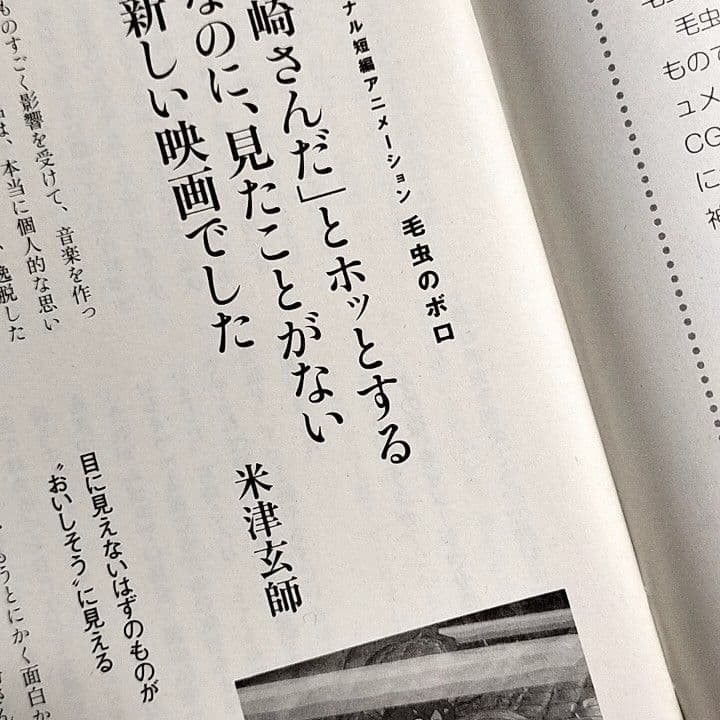 毛虫
もので
ュメ
CG
に
神
ナル短編アニメーション 毛虫のボロ
崎さんだ」とホッとする
なのに、見たことがない
新しい映画でした
米津玄師
ものすごく影響を受けて、音楽を作っ
は、本当に個人的な思い
逸脱した
目に見えないはずのものが
〝おいしそう〟に見える
うとにかく面白か